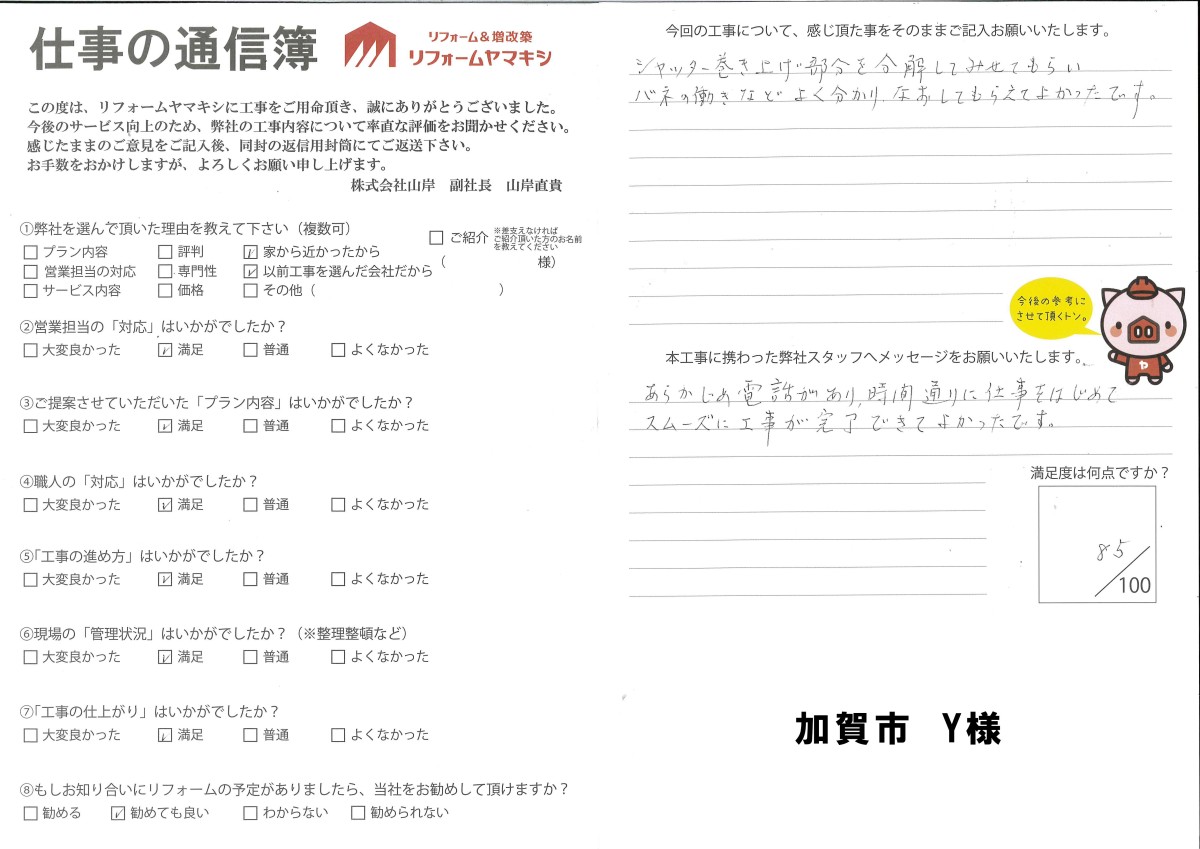 仕事の通信簿
リフォーム&増改築
リフォームヤマキシ
この度は、リフォームヤマキシに工事をご用命頂き、誠にありがとうございました。
今後のサービス向上のため、弊社の工事内容について率直な評価をお聞かせください。
感じたままのご意見をご記入後、同封の返信用封筒にてご返送下さい。
お手数をおかけしますが、よろしくお願い申し上げます。
株式会社山岸 副社長 山岸直貴
①弊社を選んで頂いた理由を教えて下さい（複数可）
□ プラン内容 □ 評判 ☑ 家から近かったから
□ 営業担当の対応 □ 専門性 ☑ 以前工事を選んだ会社だから
□ サービス内容 □ 価格 □ その他（ ）
□ ご紹介
※差支えなければ
ご紹介頂いた方のお名前
を教えてください
（ 様）
②営業担当の「対応」はいかがでしたか？
□ 大変良かった ☑ 満足 □ 普通 □ よくなかった
③ご提案させていただいた「プラン内容」はいかがでしたか？
□ 大変良かった ☑ 満足 □ 普通 □ よくなかった
④職人の「対応」はいかがでしたか？
□ 大変良かった ☑ 満足 □ 普通 □ よくなかった
⑤「工事の進め方」はいかがでしたか？
□ 大変良かった ☑ 満足 □ 普通 □ よくなかった
⑥現場の「管理状況」はいかがでしたか？（※整理整頓など）
□ 大変良かった ☑ 満足 □ 普通 □ よくなかった
⑦「工事の仕上がり」はいかがでしたか？
□ 大変良かった ☑ 満足 □ 普通 □ よくなかった
⑧もしお知り合いにリフォームの予定がありましたら、当社をお勧めして頂けますか？
□ 勧める ☑ 勧めても良い □ わからない □ 勧められない
今回の工事について、感じ頂た事をそのままご記入お願いいたします。
シャッター巻き上げ部分を分解してみせてもらい
バネの働きなどよく分かり、なおしてもらえてよかったです。
今後の参考に
させて頂くトン。
ヤ
本工事に携わった弊社スタッフへメッセージをお願いいたします。
あらかじめ電話があり、時間通りに仕事をはじめて
スムーズに工事が完了できてよかったです。
満足度は何点ですか？
85/100
加賀市 Y様